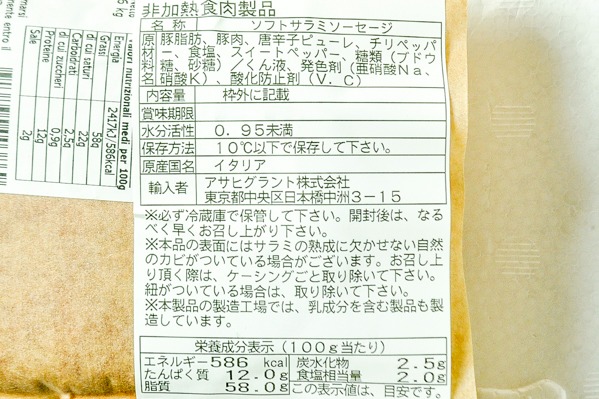 非加熱食肉製品
名 称 ソフトサラミソーセージ
原材料名 豚脂肪、豚肉、唐辛子ピューレ、チリペッパ
ー、食塩、スイートペッパー、糖類(ブドウ
糖、砂糖)／くん液、発色剤(亜硝酸Na、
硝酸K)、酸化防止剤(V.C)
内容量 枠外に記載
賞味期限
水分活性 0.95未満
保存方法 10℃以下で保存して下さい。
原産国名 イタリア
輸入者 アサヒグラント株式会社
東京都中央区日本橋中洲3-15
※必ず冷蔵庫で保管して下さい。開封後は、なる
べく早くお召し上がり下さい。
※本品の表面にはサラミの熟成に欠かせない自然
のカビがついている場合がございます。お召し上が
り頂く際は、ケーシングごと取り除いて下さい。
紐がついている場合は、取り除いて下さい。
※本製品の製造工場では、乳成分を含む製品も製
造しています。
栄養成分表示(100g当たり)
エネルギー586 kcal 炭水化物 2.5g
たんぱく質 12.0g 食塩相当量 2.0g
脂質 58.0g この表示値は、目安です。
Valori nutrizionali medi per 100g
Energia 2417kJ/586kcal
Grassi 58g
di cui saturi 22g
Carboidrati 2,5g
di cui zuccheri 0,9g
Proteine 12g
Sale 2g